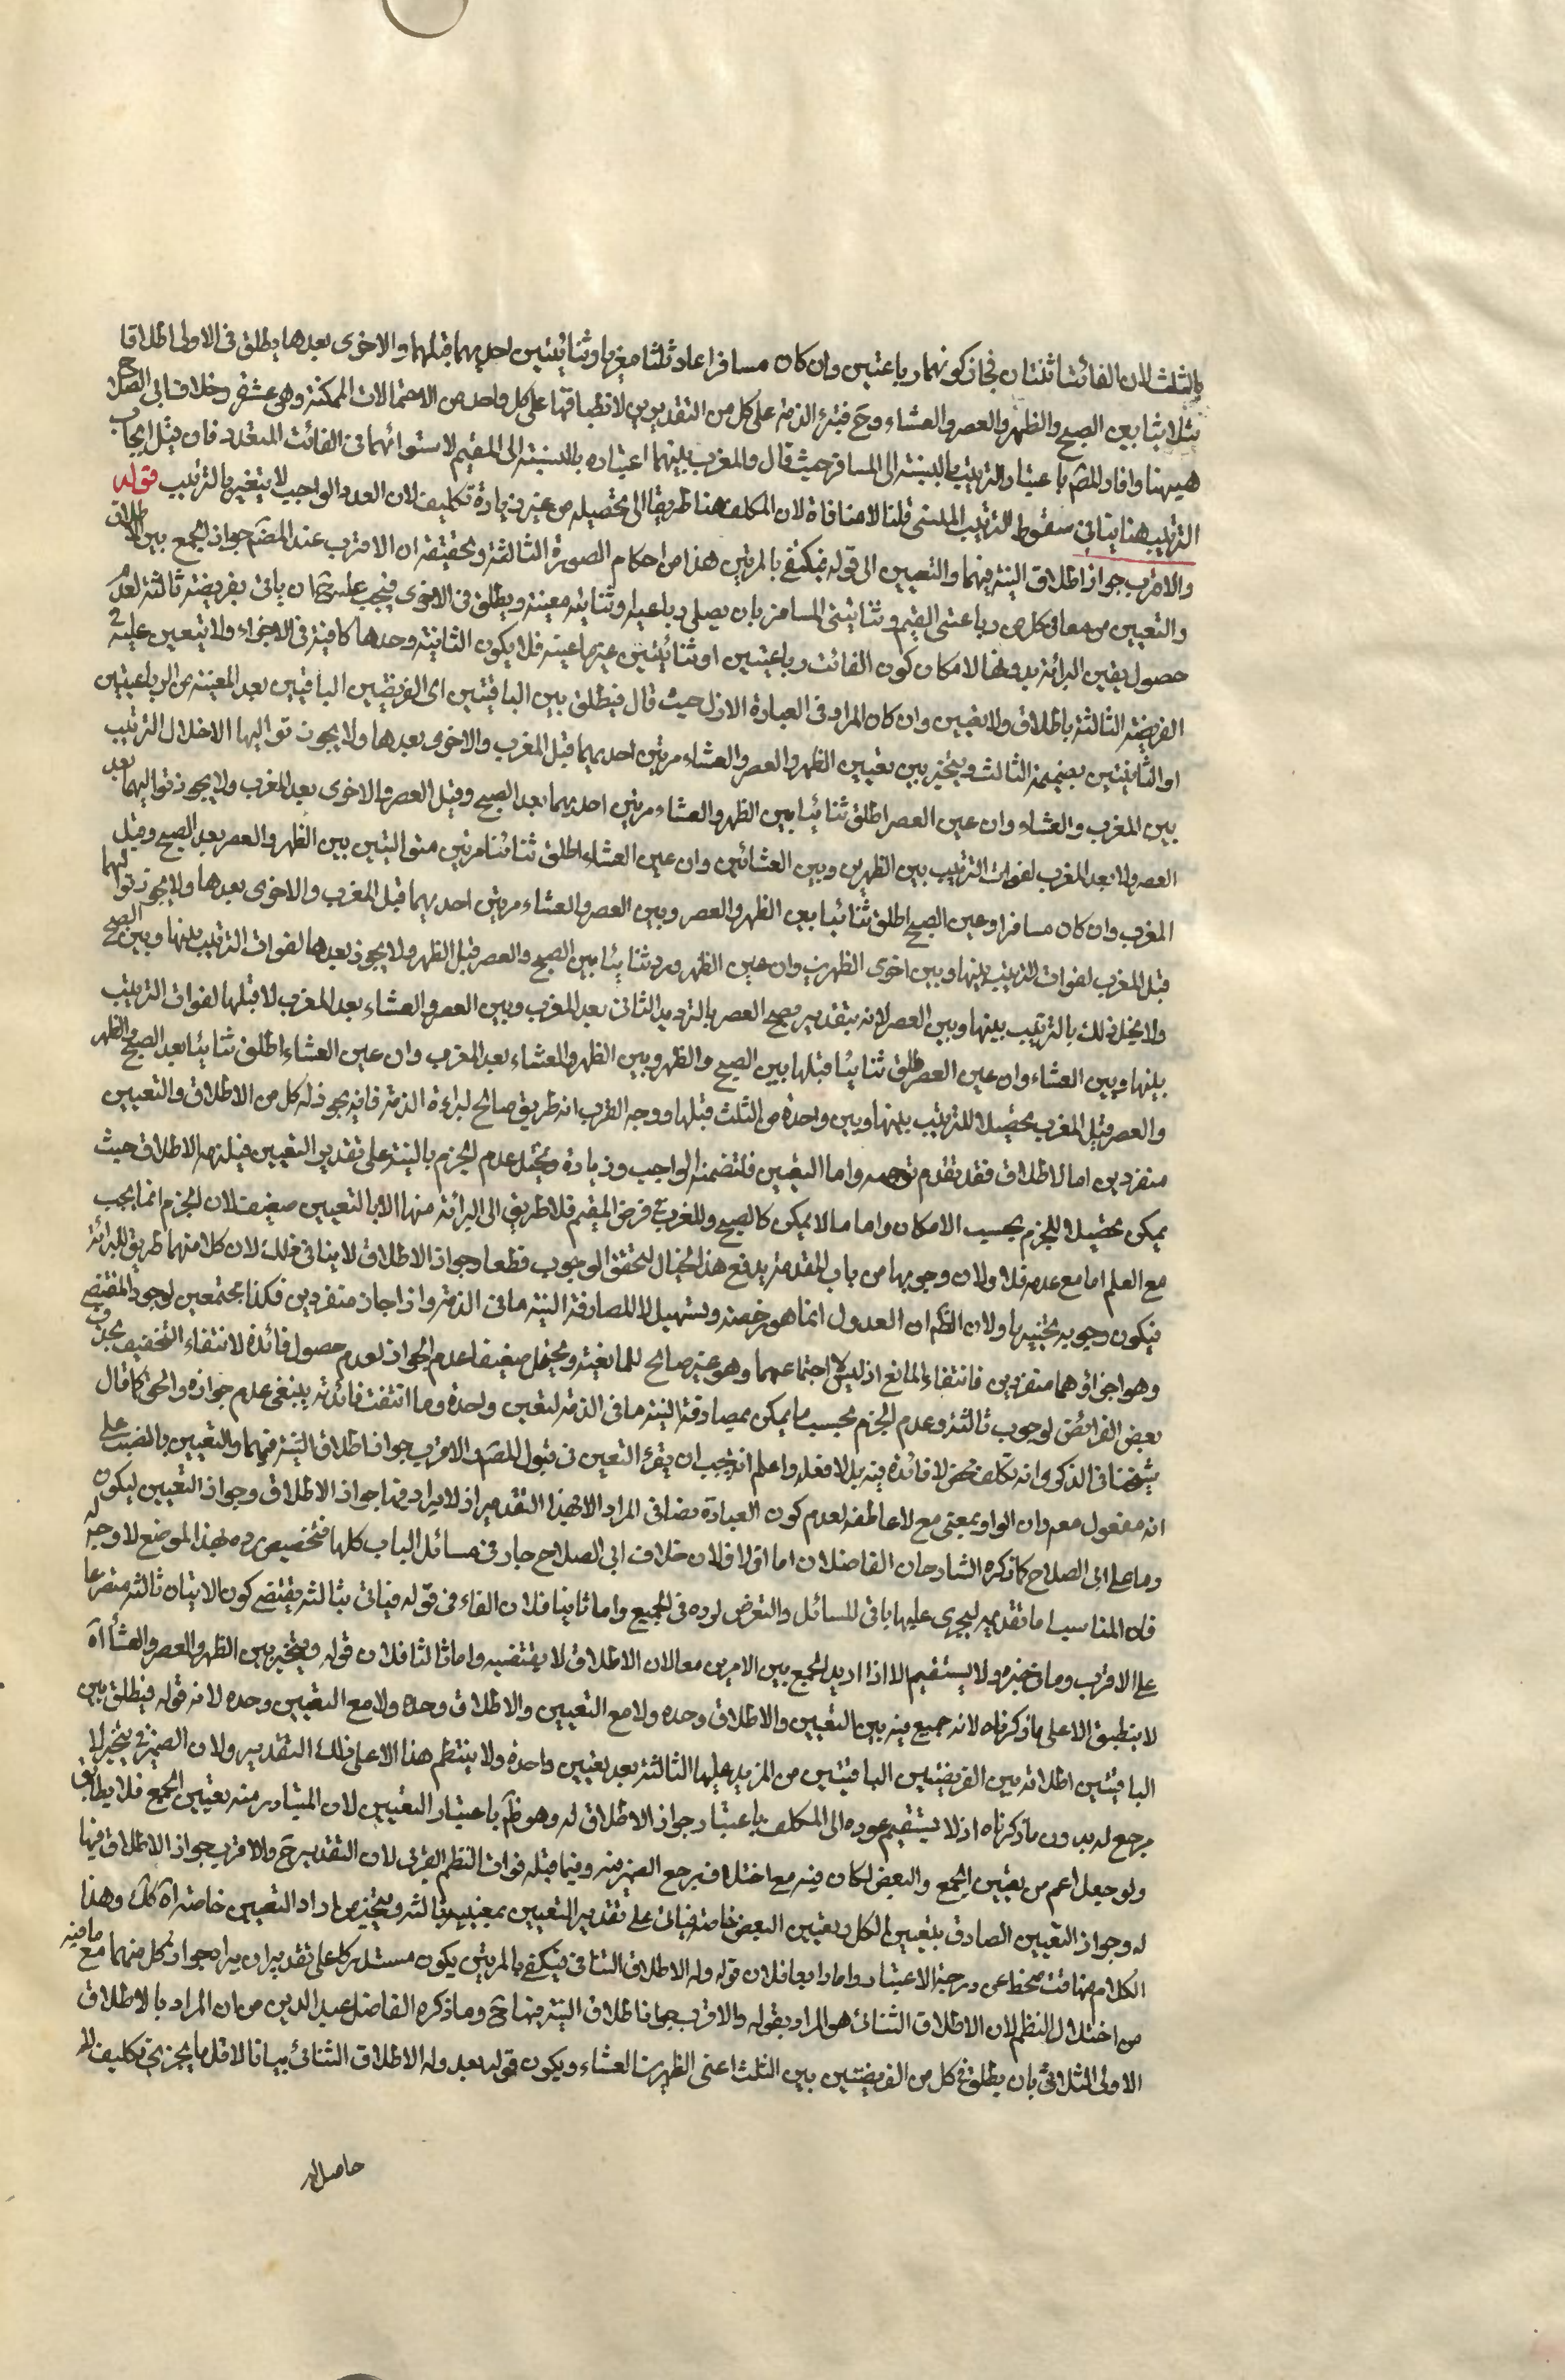 بالثلث لان الفائتتا ثنتان فجاز كونهما رباعيتين وان كان مسافرا عاد ثلثا مغربا وثنائيتين احديهما قبلهما والاخرى بعدها يطلق فى الاولى اطلاقا
ثلاثيا بين الصبح والظهر والعصر والعشاء وح فتبرء الذمة على كل من التقديرين لانطباقها على كل واحد من الاحتمالات الممكنة وهى عشرة وخلاف ابى الصلاح
هيهنا وافاد المصَ باعتبار الترتيب بالنسبة الى المسافر حيث قال والمغرب بينهما اعتباره بالنسبة الى المقيم لاستوائهما فى الفائت المتعدد فان قيل ايجاب
الترتيب هنا ينافى سقوط الترتيب المنسى قلنا لا منافاة لان المكلف هنا طريقا الى تحصيله من غير زيادة تكليف لان العدد الواجب لا يتغير بالترتيب قوله
والاقرب جواز اطلاق النية فيهما والتعيين الى قوله فيكتفى بالمرتين هذا من احكام الصورة الثالثة وتحقيقه ان الاقرب عند المصَ جواز الجمع بين الاطلاق
والتعيين معا فى كل من رباعيتى المقيم وثنائيتى المسافر بان يصلى رباعية وثنائية معينة ويطلق فى الاخرى فيجب عليه ح ان ياتى بفريضة ثالثة لعدم
حصول يقين البرائة بدونها لامكان كون الفائت رباعيتين او ثنائيتين غير ما عينه فلا يكون الثانية وحدها كافية فى الاجزاء ولا يتعين عليه ح
الفريضة الثالثة باطلاق ولا تعيين وان كان المراد فى العبارة الاول حيث قال فيطلق بين الباقيتين اى الفريضتين الباقيتين بعد المعينة من الرباعيتين
او الثنائيتين بضميمة الثالث ويتخير بين تعيين الظهر والعصر والعشاء مرتين احديهما قبل المغرب والاخرى بعدها ولا يجوز تواليها لاخلال الترتيب
بين المغرب والعشاء وان عين العصر اطلق ثنائيا بين الظهر والعشاء مرتين احديهما بعد الصبح وقبل العصر والاخرى بعد المغرب ولا يجوز تواليهما بعد
العصر ولا بعد المغرب لفوات الترتيب بين الظهرين وبين العشائين وان عين العشاء اطلق ثنائيا مرتين متواليتين بين الظهر والعصر بعد الصبح وقبل
المغرب وان كان مسافرا وعين الصبح اطلق ثنائيا بين الظهر والعصر وبين العصر والعشاء مرتين احديهما قبل المغرب والاخرى بعدها ولا يجوز تواليهما
قبل المغرب لفوات الترتيب بينها وبين اخرى الظهرين وان عين الظهر ردد ثنائيا بين الصبح والعصر قبل الظهر ولا يجوز بعدها لفوات الترتيب بينها وبين الصبح
ولا يخل ذلك بالترتيب بينها وبين العصر لانه بتقديره يصح العصر بالترديد الثانى بعد المغرب وبين العصر والعشاء بعد المغرب لا قبلها لفوات الترتيب
بينها وبين العشاء وان عين العصر اطلق ثنائيا قبلها بين الصبح والظهر وبين الظهر والعشاء بعد المغرب وان عين العشاء اطلق ثنائيا بعد الصبح والظهر
والعصر قبل المغرب تحصيلا للترتيب بينها وبين واحدة من الثلث قبلها ووجه القرب انه طريق صالح لبراءة الذمة فانه يجوز له كل من الاطلاق والتعيين
منفردين اما الاطلاق فقد تقدم توجيهه واما التعيين فلتضمنه الواجب وزيادة ويحتمل عدم الجزم بالنية على تقدير التعيين فيلزمه الاطلاق حيث
يمكن تحصيلا للجزم بحسب الامكان واما ما لا يمكن كالصبح والمغرب فى فرض المقيم فلا طريق الى البرائة منها الا بالتعيين ضعيف لان الجزم انما يجب
مع العلم اما مع عدمه فلا ولان وجوبها من باب المقدمة يدفع هذا الخيال لتحقق الوجوب قطعا وجواز الاطلاق لا ينافى ذلك لان كلا منهما طريق للبرائة
فيكون وجوبه تخييريا ولان الظَم ان العدول انما هو رخصة وتسهيل لا للمصادفة النية ما فى الذمة واذا جاز منفردين فكذا مجتمعين لوجود المقتضى
وهو اجزاؤهما منفردين فانتفاء المانع اذ ليس الا اجتماعهما وهو غير صالح للمانعية ويحتمل ضعيفا عدم الجواز لعدم حصول فائدة لانتفاء التخفيف بحذف
بعض الفرائض لوجوب ثالثة وعدم الجزم بحسب ما يمكن بمصادفة النية ما فى الذمة لتعين واحدة وما انتفت فائدته ينبغى عدم جوازه والحق كما قال
شيخنا فى الذكرى انه تكلف محض لا فائدة فيه بل لا فعله واعلم انه يجب ان يقرء التعيين فى قول المصَ والاقرب جواز اطلاق النية فيهما والتعيين بالنصب على
انه مفعول معه وان الواو بمعنى مع لا عاطفة لعدم كون العبارة نصا فى المراد الا بهذا التقدير اذ لا يراد فيها جواز الاطلاق وجواز التعيين ليكون
وما على ابى الصلاح كما ذكره الشارحان الفاضلان اما اولا فلان خلاف ابى الصلاح جار فى مسائل الباب كلها فتخصيص رده بهذا الموضع لا وجه له
فان المناسب اما تقديمه ليجرى عليها باقى المسائل والتعرض لرده فى الجميع واما ثانيا فلان الفاء فى قوله فياتى بثالثة يقتضى كون الاتيان ثالثة متفرعا
على الاقرب وما فى خبره ولا يستقيم الا اذا اريد الجمع بين الامرين معا لان الاطلاق لا يقتضيه واما ثالثا فلان قوله ويتخير بين الظهر والعصر والعشاء آه
لا ينطبق الا على ما ذكرناه لانه جمع فيه بين التعيين والاطلاق وحده ولا مع التعيين والاطلاق وحده ولا مع التعيين وحده لانه قوله فيطلق بين
الباقيتين اطلاقه بين الفريضتين الباقيتين من المزيد عليها الثالثة بعد تعيين واحدة ولا ينتظم هذا الا على ذلك التقدير ولان الضمير فى يتخير لا
مرجع له بدون ما ذكرناه اذ لا يستقيم عوده الى المكلف باعتبار جواز الاطلاق له وهو ظَم باعتبار التعيين لان المتبادر منه تعيين الجمع فلا يطابق
ولو جعل اعم من تعيين الجمع والبعض لكان فيه مع اختلاف مرجع الضمير فيه وفيما قبله فوات النظم القرب لان التقدير ح والاقرب جواز الاطلاق فيها
له وجواز التعيين الصادق بتعيين الكل وتعيين البعض خاصة فياتى على تقدير التعيين بمعنييه بثالثة ويتخير من اراد التعيين خاصة آه كل وهذا
الكلام متهافت منحط عن درجة الاعتبار واما رابعا فلان قوله وله الاطلاق الثنائى فيكتفى بالمرتين يكون مستدركا على تقدير ان يراد جواز كل منهما مع ما فيه
من اختلال النظم لان الاطلاق الثنائى هو المراد بقوله والاقرب جواز اطلاق النية فيها ح وما ذكره الفاضل عميد الدين من ان المراد بالاطلاق
الاولى الثلاثى بان يطلق فى كل من الفريضتين بين الثلث اعنى الظهرين العشاء ويكون قوله بعد وله الاطلاق الثنائى بيانا لاقل ما يجزى تكليف الظ
حاصل له